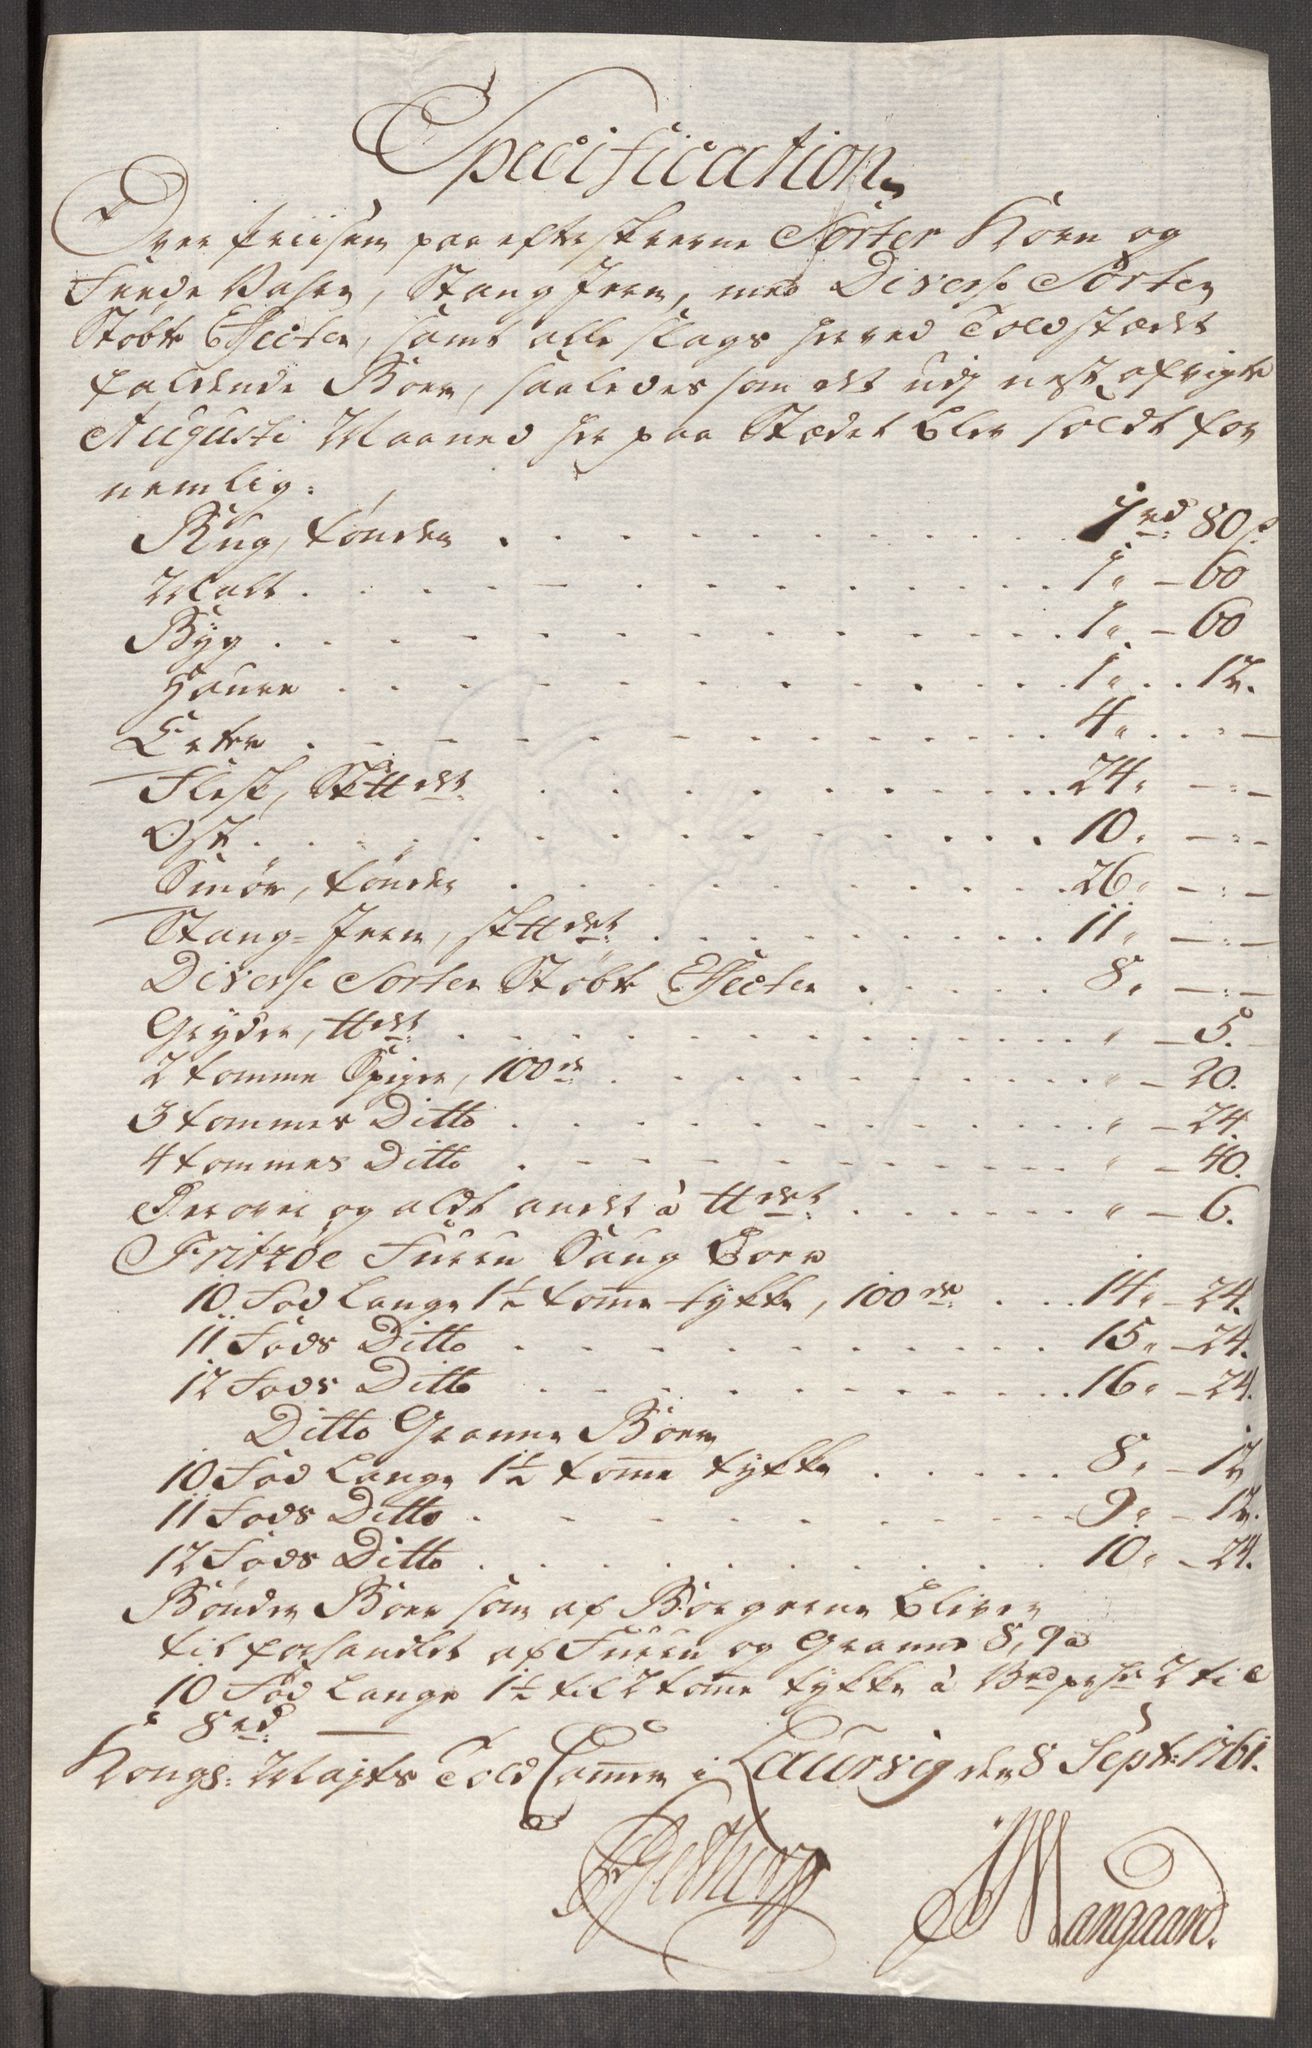 Specification
Over Priisen paa efterskrevne Sorter Korn og
Feede Vahre, Stang Jern, med Diverse Sorter
Støbte Effecter, samt alle slags her ved Toldstædet
faldende Boer, saaledes som det udj nest afvigte
Augusti Maaned her paa Stædet blev soldt for
nemlig:
Rug, tønden . . . 1 rd: 80 s.
Malt . . . 1 „ – 60
Byg . . . 1 „ – 60
Haure . . . 1 „ . . 12.
Erter . . . 4 „ . . –
Flesk, Sk℔ det . . . 24 „ – –
Ost . . . 10 „ – –
Smør, tønden . . . 26 „ – –
Stang-Jern, sk℔ det . . . 11 „ – –
Diverse Sorter Støbte Effecter . . . 8 „ – –
Gryder, ℔ det . . . „ – 5.
2 tomme Spiger, 100 de . . . „ – 20.
3 tommes Ditto . . . „ – 24.
4 tommes Ditto . . . „ – 40.
og aldt andet à ℔ det . . . „ – 6.
Fritzøe Furru Saug Boer
10 Fod Lange 1½ tome tykke, 100 de . . . 14 „ – 24.
11 Fods Ditto . . . 15 „ – 24.
12 Fods Ditto . . . 16 „ – 24.
Ditto Granne Boer
10 Fod Lange 1½ tome tykke . . . 8 „ – 12
11 Fods Ditto . . . 9 „ – 12.
12 Fods Ditto . . . 10 „ – 24.
Bønder Boer som af Borgerne bliver
til forhandlet af Furru og Granne 8, 9 à
10 Fod Lange 1½ til 2 tome tykke à 7 til
8 rd:
Kongs: Majts Told Cammer i Laurvig den 8 Sept: 1761.
Mangaard.